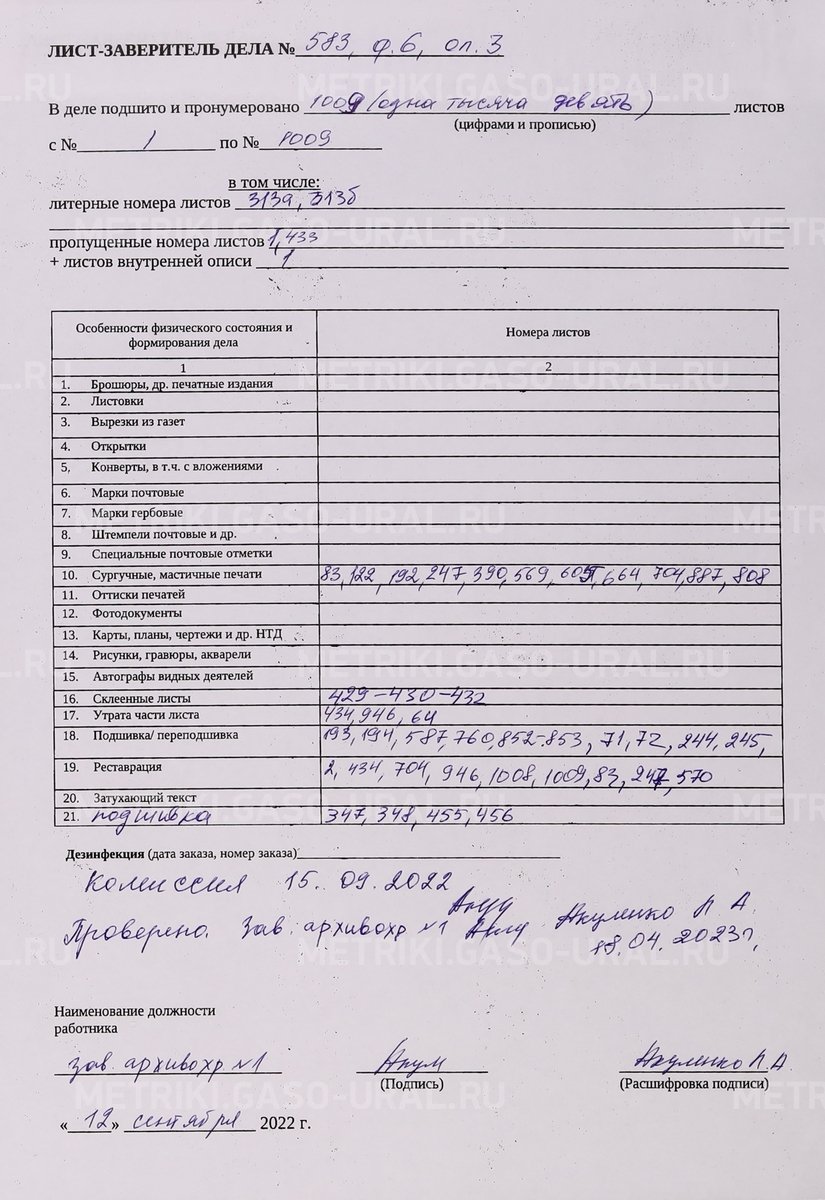 ЛИСТ-ЗАВЕРИТЕЛЬ ДЕЛА № 583, ф.6, оп.3
В деле подшито и пронумеровано 1009 (одна тысяча девять) листов
(цифрами и прописью)
с № 1 по № 1009
в том числе:
литерные номера листов 313а, 313б
пропущенные номера листов 1, 433
+ листов внутренней описи 1
Особенности физического состояния и формирования дела Номера листов
1 2
1. Брошюры, др. печатные издания
2. Листовки
3. Вырезки из газет
4. Открытки
5, Конверты, в т.ч. с вложениями
6. Марки почтовые
7. Марки гербовые
8. Штемпели почтовые и др.
9. Специальные почтовые отметки
10. Сургучные, мастичные печати 83, 122, 192, 247, 390, 569, 605, 664, 704, 887, 808
11. Оттиски печатей
12. Фотодокументы
13. Карты, планы, чертежи и др. НТД
14. Рисунки, гравюры, акварели
15. Автографы видных деятелей
16. Склеенные листы 429-430-432
17. Утрата части листа 434, 946, 64
18. Подшивка/ переподшивка 193, 194, 587, 760, 852-853, 71, 72, 244, 245,
19. Реставрация 2, 434, 704, 946, 1008, 1009, 83, 247, 570
20. Затухающий текст
21. подшивка 347, 348, 455, 456
Дезинфекция (дата заказа, номер заказа)
Комиссия 15. 09. 2022
Проверено. Зав. архивохр №1 Акуленко Л А.
18.04. 2023г,
Наименование должности
работника
зав. архивохр №1 Акул Акуленко Л.А.
(Подпись) (Расшифровка подписи)
«12» сентября 2022 г.
METRIKI.GASO-URAL.RU